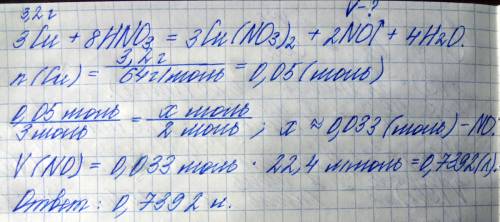 3,2г V-?
3Cu + 8HNO3 = 3Cu(NO3)2 + 2NO↑ + 4H2O.
n(Cu) = 3,2г / 64г/моль = 0,05(моль)
0,05 моль / 3 моль = x моль / 2 моль ; x ≈ 0,033(моль) - NO.
V(NO) = 0,033 моль · 22,4 л/моль = 0,7392(л).
Ответ: 0,7392 л.